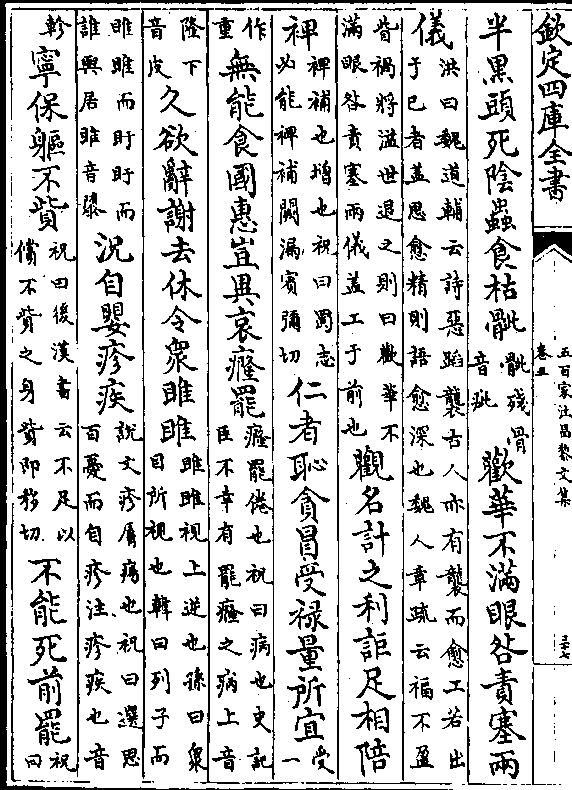 欽定四庫全書
五百家注昌黎文集
卷五
三十七
半黑頭死陰蟲食枯骴骴殘骨音疵歡華不滿眼咎責塞兩
儀洪曰魏道輔云詩惡蹈襲古人亦有襲而愈工若出于己者蓋思愈精則語愈深也魏人章疏云福不盈
眥禍將溢世退之則曰歡華不滿眼咎責塞兩儀蓋工于前也觀名計之利詎足相陪
裨裨補也增也祝曰蜀志必能裨補闕漏賓彌切仁者恥貪冒受禄量所宜受一
作重無能食國惠豈異哀癃罷癃罷倦也祝曰病也史記臣不幸有罷癃之病上音
隆下音皮久欲辭謝去休令衆睢睢睢睢視上逆也孫曰衆目所視也韓曰列子而
睢睢而盱盱而誰與居睢音隳況自嬰疹疾説文疹脣瘍也祝曰選思百憂而自疹注疹疾也音
軫寧保軀不貲祝曰後漢書云不足以償不貲之身貲即移切不能死前罷祝曰